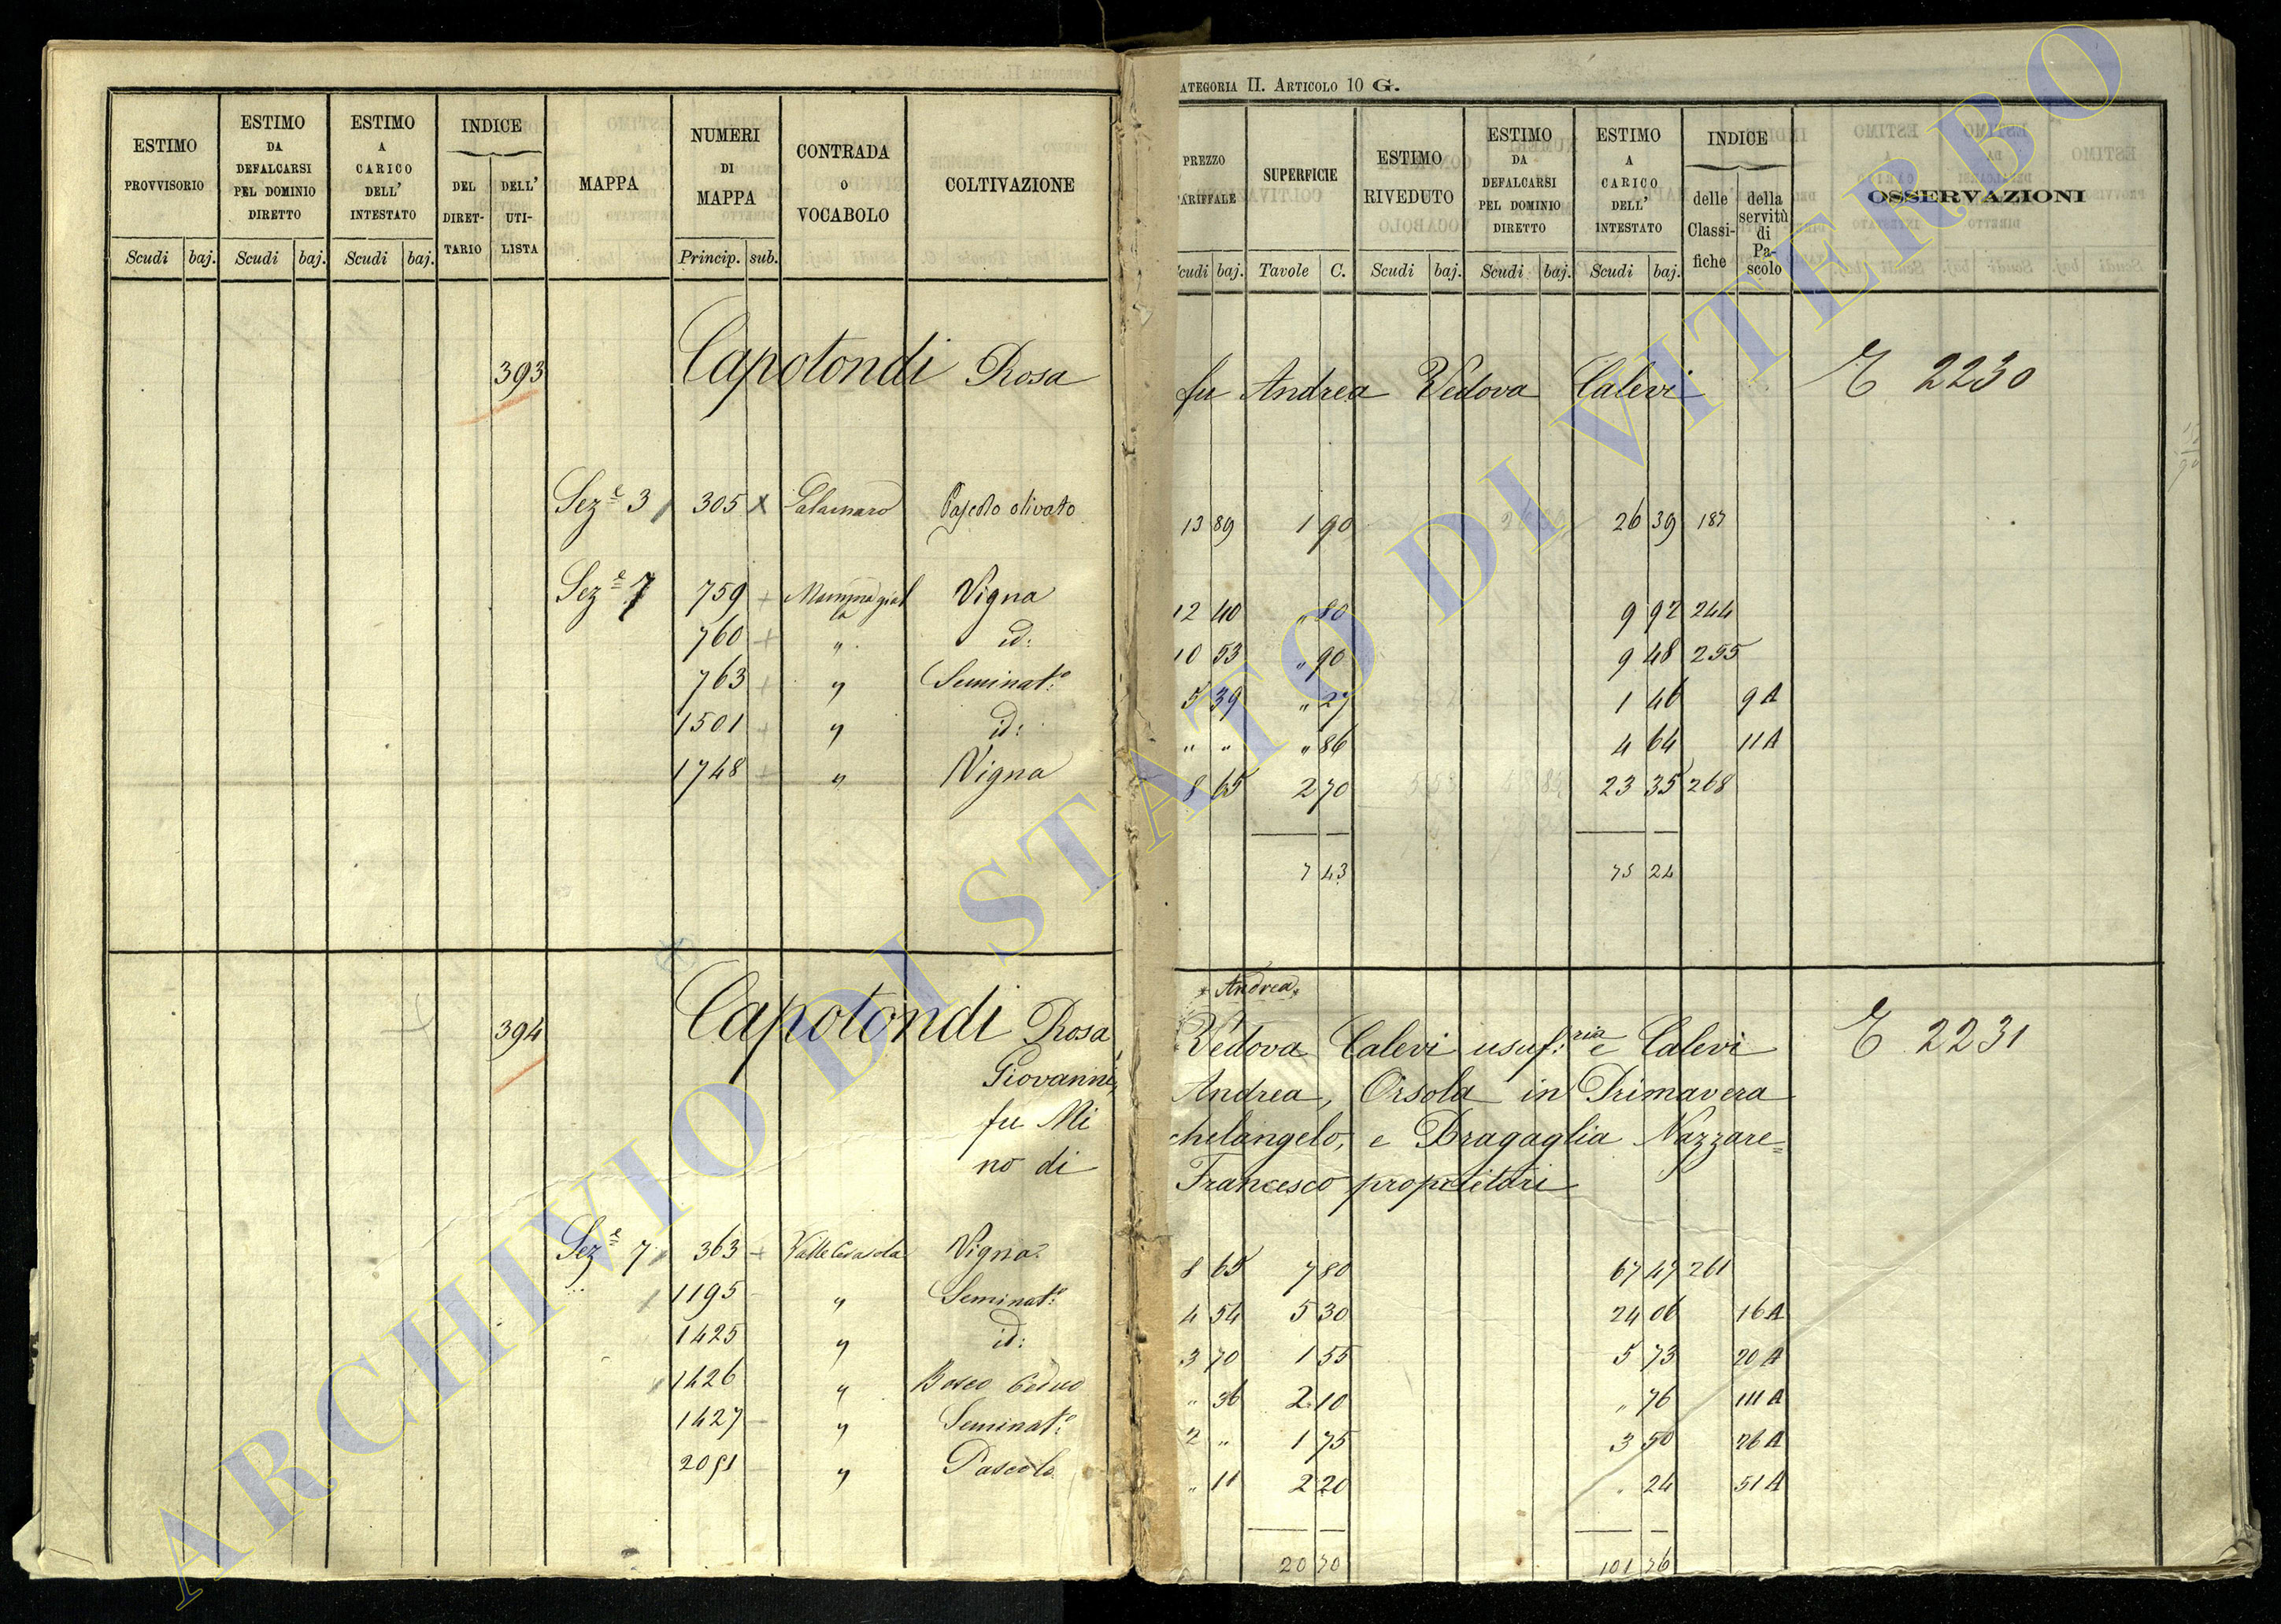 CATEGORIA II. ARTICOLO 10 G.
ESTIMO PROVVISORIO Scudi baj.
ESTIMO DA DEFALCARSI PEL DOMINIO DIRETTO Scudi baj.
ESTIMO A CARICO DELL' INTESTATO Scudi baj.
INDICE DEL DIRET-TARIO DELL' UTI-LISTA
MAPPA
NUMERI DI MAPPA Princip. sub.
CONTRADA O VOCABOLO
COLTIVAZIONE
PREZZO TARIFFALE Scudi baj.
SUPERFICIE Tavole C.
ESTIMO RIVEDUTO Scudi baj.
ESTIMO DA DEFALCARSI PEL DOMINIO DIRETTO Scudi baj.
ESTIMO A CARICO DELL' INTESTATO Scudi baj.
INDICE delle Classi-fiche della servitù di Pa-scolo
OSSERVAZIONI
393 Capotondi Rosa fu Andrea Vedova Calevi E 2230
Seze 3 305 x Pascolo olivato 13 89 1 90 26 39 187
Seze 7 759 + Vigna 12 40 " 80 9 92 244
760 + " id: 10 53 " 90 9 48 255
763 + " Seminato: 5 39 " 27 1 46 9 A
1501 + " id: " " " 86 4 64 11 A
1748 + " Vigna 8 65 2 70 23 35 268
7 43 75 24
* Andrea *
394 Capotondi Rosa Vedova Calevi usuf:ria e Calevi E 2231
Giovanni, Andrea, Orsola in Primavera
fu Michelangelo, e Bragaglia Nazzare=
no di Francesco proprietari
Seze 7 363 + Vigna 8 65 7 80 67 47 261
1195 " Seminato: 4 54 5 30 24 06 16 A
1425 " id: 3 70 1 55 5 73 20 A
1426 " Bosco Ceduo " 36 2 10 " 76 111 A
1427 " Seminato: 2 " 1 75 3 50 26 A
2091 " Pascolo " 11 2 20 " 24 51 A
20 70 101 76
ARCHIVIO DI STATO DI VITERBO